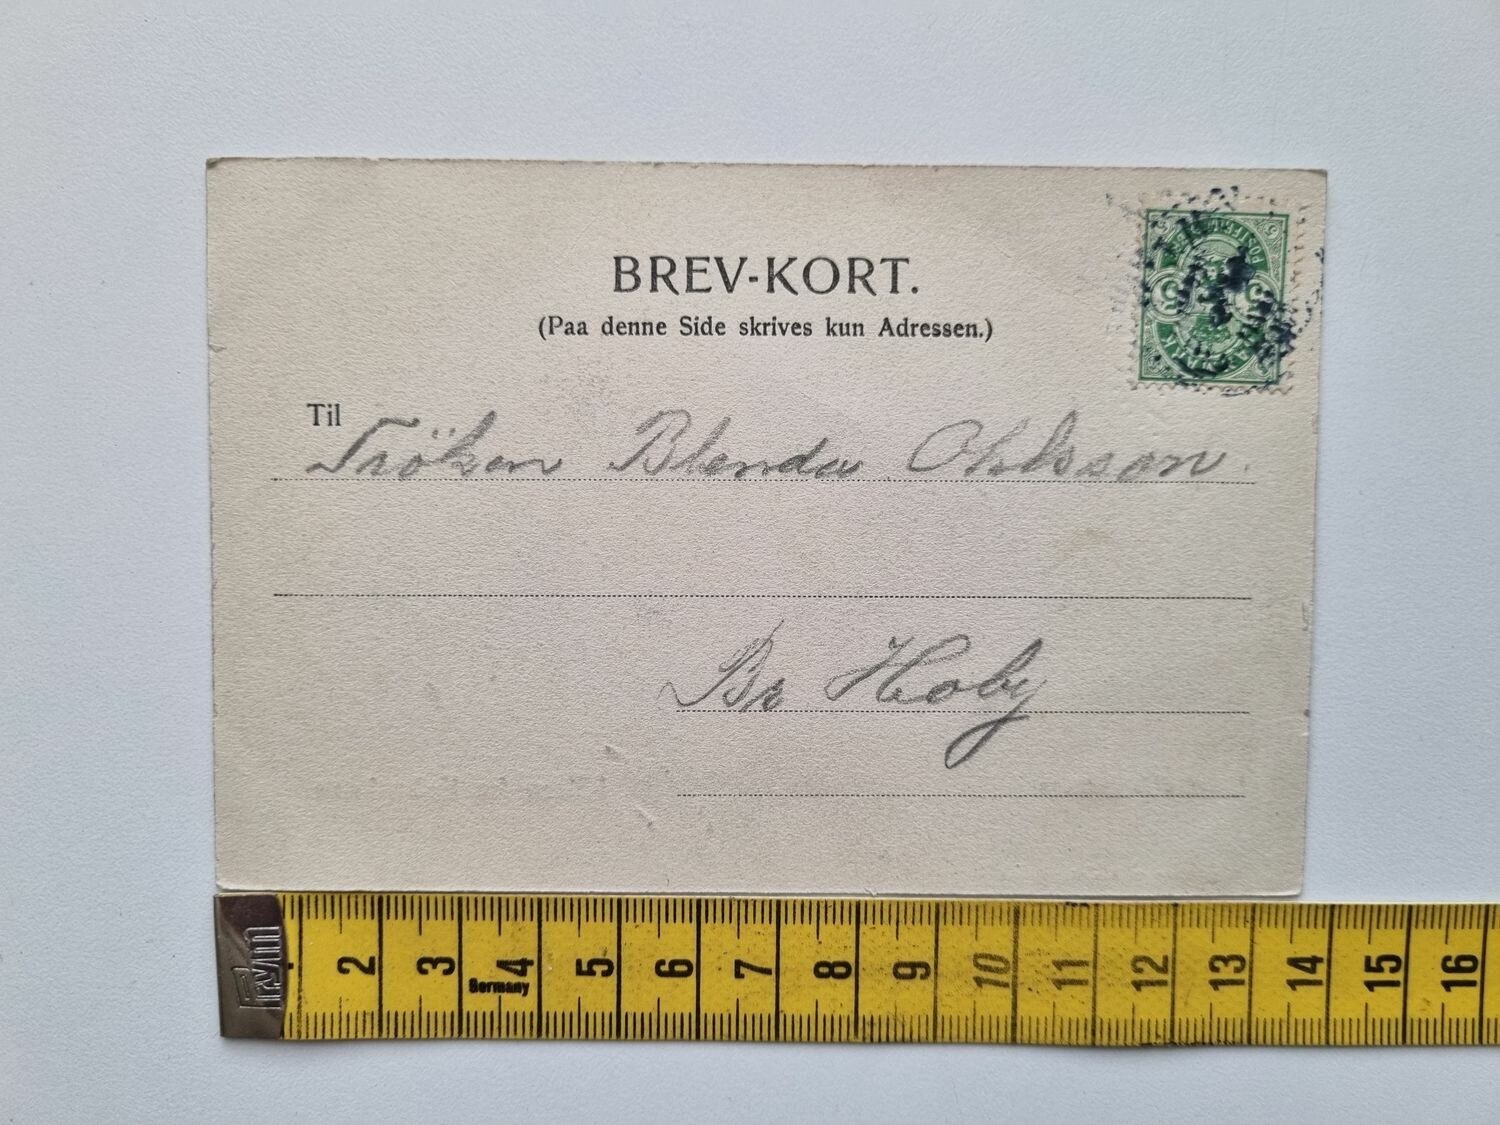 BREV-KORT.
(Paa denne Side skrives kun Adressen.)
DANMARK
5 5
Til Fröken Blenda Ohlsson.
Br Hoby
Prym
2 3 4 5 6 7 8 9 10 11 12 13 14 15 16
Germany